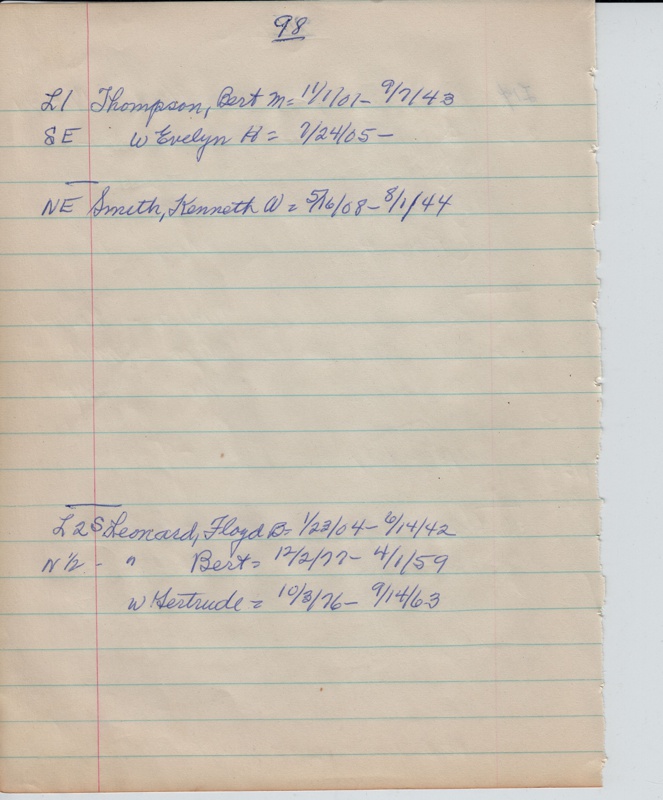 98
L1 Thompson, Bert M = 11/1/01 - 9/7/43
SE w Evelyn H = 7/24/05 -
NE Smith, Kenneth W = 5/16/08 - 8/1/44
L2 S Leonard, Floyd B = 1/23/04 - 6/14/42
N 1/2 - " Bert = 12/2/77 - 4/1/59
w Gertrude = 10/3/76 - 9/14/63